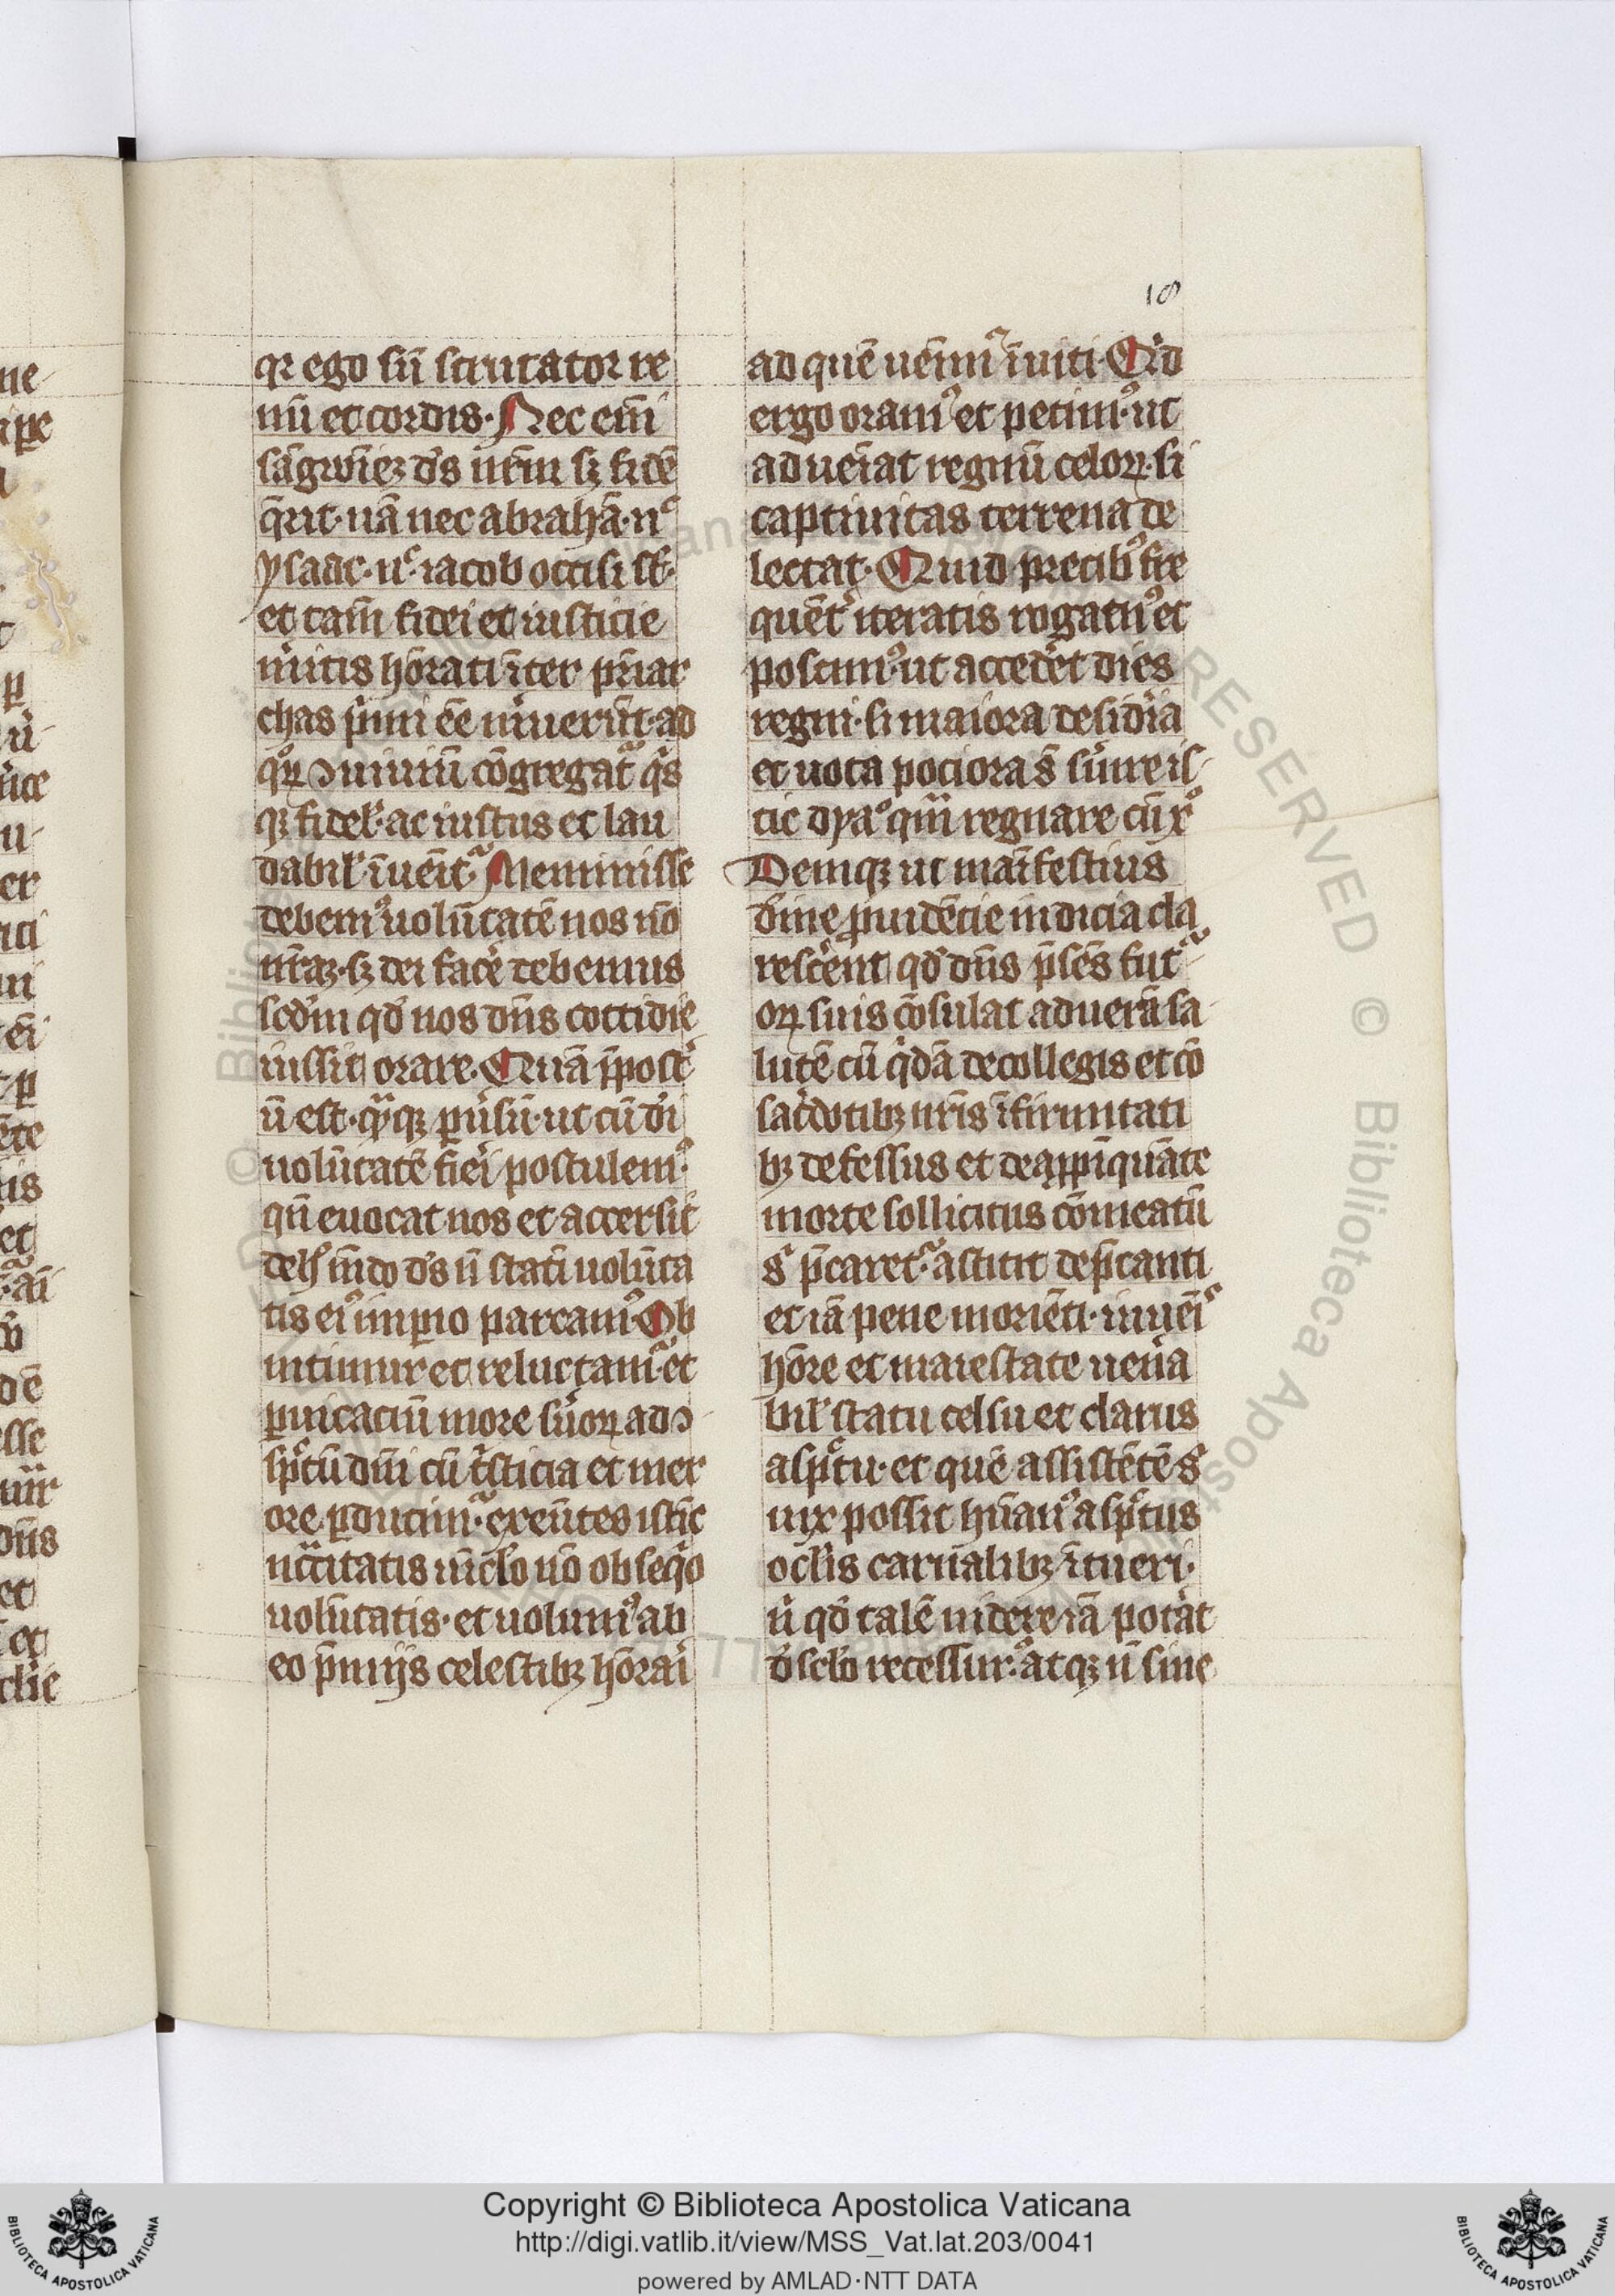 18
qr ego sū scrutator re
nū et cordis. Nec eni̅
sāgu̅neʒ d̅s nr̅m sʒ fidē
q̅rit. nā nec abrahā. nͨ
ysaac. nͨ. iacob occisi st̅.
et tam̅ fidei et iusticie
mitis ho̅rati īter pr̅iar
chas pͥmi ee̅ meͬuerūt. ad
qͦꝝ ↄuiuiū co̅gregat᷑ qͥs
qʒ fidel̕. ac iustus et lau
dabil̕ īuēit᷑. Meminisse
debemꝰ uolūtatē nos no̅
nr̅aʒ. sʒ dei facͤe debemus
scd̅m qd̅ nos dn̅s cottidie
iussit orare. Quā p̅post̕
ū est. qᷓqʒ ꝑuͤsū. ut cū dͤi
uolūtatē fieri postulemꝰ.
qn̅ euocat nos et accersit
de hͦ mūdo d̅s n̅ stati̅ uolūta
tis eiꝰ imꝑio pareamꝰ. Ob
nitimur et reluctam᷑. et
ꝑuicaciū more sͤuoꝝ ad ↄ
spͨtū dn̅i cū tͥsticia et mer
ore ꝑducim᷑. exeūtes istīc
nc̅citatis uīcl̅o no̅ obseqͥo
uolūtatis. et uolumꝰ ab
eo p̅mijs celestibʒ ho̅rai̕
ad quē uēim᷑ īuiti. Qͥd
ergo oramꝰ et petimꝰ. ut
adueīat regnū celoꝝ. si
captiuitas terrena de
lectat. Quid precibꝰ fre
quēt̕ iteratis rogamꝰ et
poscimꝰ. ut accedͤet dies
regni. si maiora desidͤia
et uota pociora s̅ sͤuire is
tic dyaͦ. qm̅ regnare cū xͦ
Deniqʒ ut maīfestius
dīne ꝓuidēcie indicia cla
rescͤent qd̅ dn̅s p̅sēs fut᷑
oꝝ suis co̅sulat ad uerā sa
lutē cū qͥdā de collegis et co̅
sacͤdotibʒ nr̅is īfirmitati
bʒ defessus et de appī̅quāte
morte sollicitus co̅meatū
sͥ p̅caret᷑. astitit dep̅canti
et iā pene moriēti. iuuēiͨ
ho̅re et maiestate uenͤa
bil̕ statu celsu et clarus
aspͨtu. et quē assistētē sͥ
uix possit hūanꝰ aspͨtus
ocl̅is carnalibʒ ītueri.
n̅ qd̅ talē uidere iā potͤat
dͤ scl̅o recessurꝰ. atqʒ n̅ sine
Copyright © Biblioteca Apostolica Vaticana
http://digi.vatlib.it/view/MSS_Vat.lat.203/0041
powered by AMLAD·NTT DATA
BIBLIOTECA APOSTOLICA VATICANA
BIBLIOTECA APOSTOLICA VATICANA